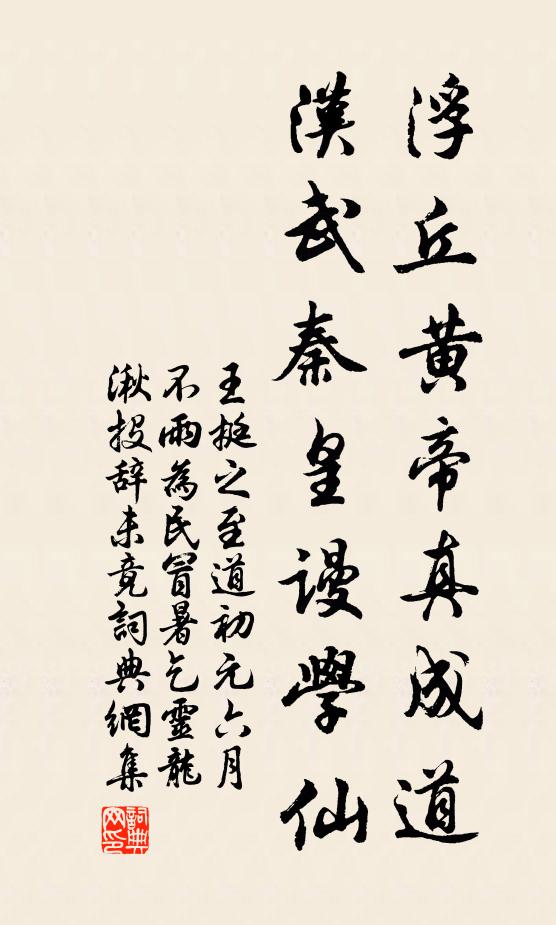 浮丘黄帝真成道
漢武秦皇謾學仙
王挺之至道初元六月
不雨為民冒暑乞靈龍
湫投辞未竟詞典網集
詞典网印